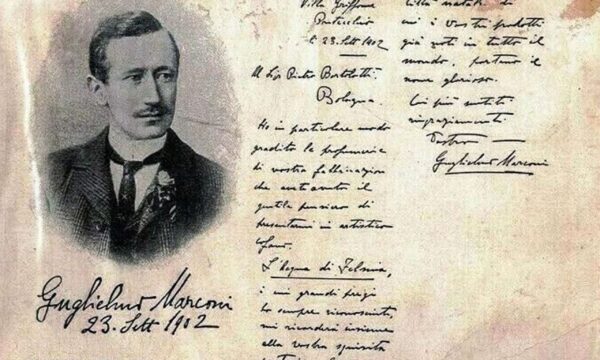 Guglielmo Marconi
23. Sett 1902
Villa Griffone
Pontecchio
li 23. Sett 1902
Al Sig Pietro Bortolotti.
Bologna.
Ho in particolare modo
gradito le profumerie
di vostra fabbricazione
che avete avuto il
gentile pensiero di
presentarmi in artistico
cofano.
L'Acqua di Felsina,
i cui grandi pregi
ho sempre riconosciuto,
mi ricorderà insieme
alla vostra squisita
città natale di
cui i vostri prodotti
già noti in tutto il
mondo, portano il
nome glorioso.
Coi più sentiti
ringraziamenti
Vostro
Guglielmo Marconi